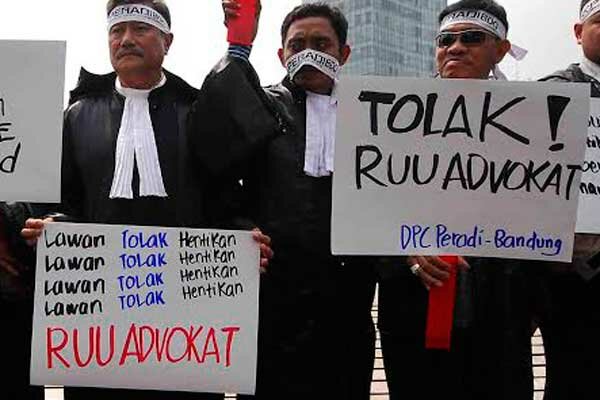 PERADI
PERADI
PERADI
Lawan TOLAK Hentikan
Lawan TOLAK Hentikan
Lawan TOLAK Hentikan
Lawan TOLAK Hentikan
RUU ADVOKAT
TOLAK!
RUU ADVOKAT
DPC Peradi-Bandung